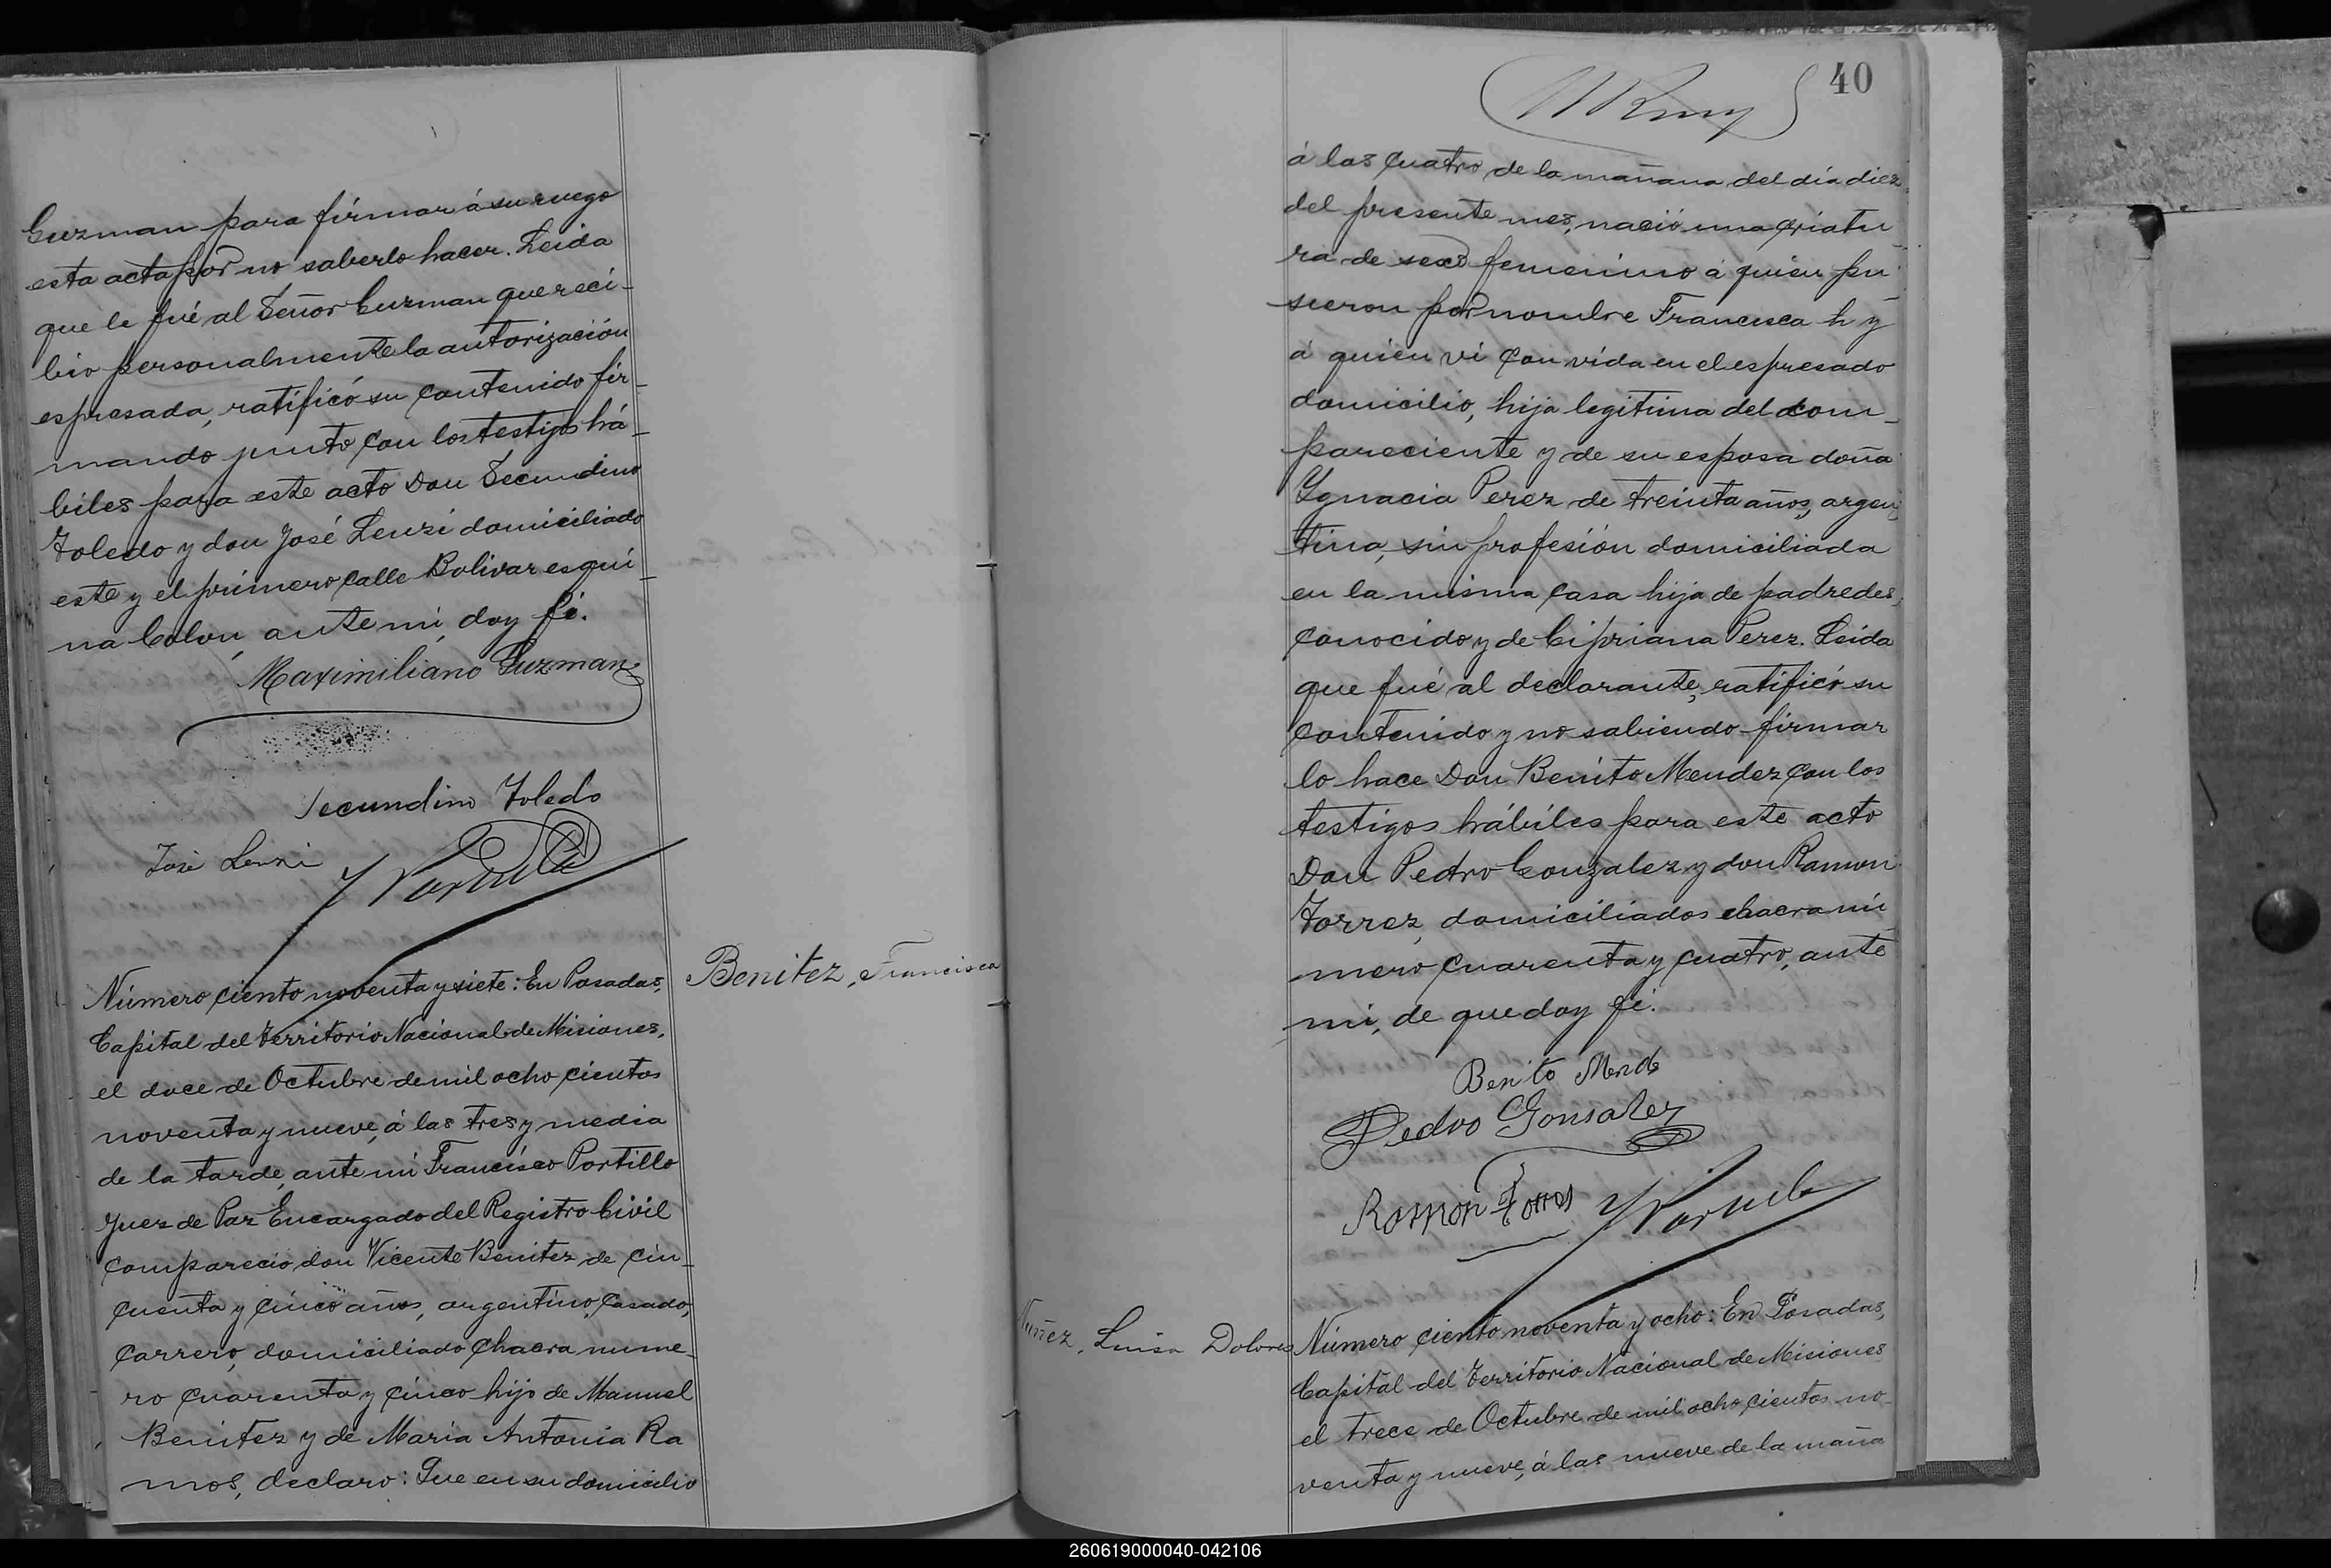 Guzman para firmar á su ruego
esta acta por no saberlo hacer. Leida
que le fué al Señor Guzman que reci-
bio personalmente la autorización
espresada, ratificó su contenido fir-
mando junto con los testigos há-
biles para este acto Don Secundino
Toledo y don José Lenzi domiciliado
este y el primero calle Bolivar esqui-
na Colon, ante mi, doy fé.
Maximiliano Guzman
Secundino Toledo
José Lenzi
Número ciento noventa y siete: En Posadas,
Capital del Territorio Nacional de Misiones,
el doce de Octubre de mil ocho cientos
noventa y nueve, á las tres y media
de la tarde, ante mi Francisco Portillo
Juez de Paz Encargado del Registro Civil
compareció don Vicente Benitez de cin-
cuenta y cinco años, argentino, casado,
carrero, domiciliado chacra nume-
ro cuarenta y cinco hijo de Manuel
Benitez y de Maria Antonia Ra
mos, declaro: Que en su domicilio
Benitez, Francisca
40
á las cuatro de la mañana del día diez
del presente mes, nació una criatu-
ra de sexo femenino á quien pu-
sieron por nombre Francisca h y
á quien vi con vida en el espresado
domicilio, hija legitima del com-
pareciente y de su esposa doña
Ygnacia Perez de treinta años, argen-
tina, sin profesión domiciliada
en la misma casa hija de padre des-
conocido y de Cipriana Perez. Leida
que fué al declarante, ratificó su
contenido y no sabiendo firmar
lo hace Don Benito Mendez con los
testigos hábiles para este acto
Don Pedro Gonzalez y don Ramon
Torrez, domiciliados chacra nú-
mero cuarenta y cuatro, ante
mi, de que doy fé.
Benito Mendes
Pedro Gonsalez
Ramon Torres
Nuñez, Luisa Dolores
Número ciento noventa y ocho: En Posadas,
Capital del Territorio Nacional de Misiones
el trece de Octubre de mil ocho cientos no-
venta y nueve, á las nueve de la maña
260619000040-042106